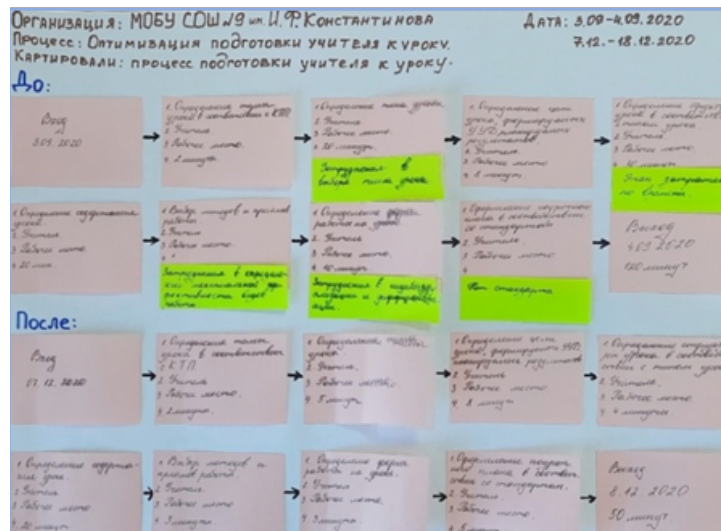 Организация: МОБУ СОШ №9 им. И.Ф. Константинова
Дата: 3.09-4.09.2020
Процесс: Оптимизация подготовки учителя к уроку.
7.12.-18.12.2020
Картировали: процесс подготовки учителя к уроку.
До:
Вход
3.09.2020
1 Определение темы
урока в соответствии с КТП
2 Учитель
3 Рабочее место.
4 2 минуты
1 Определение типа урока
2 Учитель
3 Рабочее место
4 20 минут
Затруднения в
выборе типа урока
1 Определение цели
урока, формируемых
УУД, планируемых
результатов
2 Учитель
3 Рабочее место
4 8 минут
1 Определение
урока в соответствии
с типом урока
2 Учитель
3 Рабочее место
Этап затратный
по времени.
1 Определение содержания
урока.
2 Учитель
3 Рабочее место
4 20 мин
1 Выбор методов и приемов
работы
2 Учитель
3 Рабочее место
4
Затруднения в
работы
1 Определение форм
работы на уроке
2 Учитель
3 Рабочее место
Затруднения в
и
1 Оформление поурочного
плана в соответствии
со стандартом
2 Учитель
3 Рабочее место
4
Нет стандарта
Выход
4.09.2020
После:
Вход
07.12.2020
1 Определение темы
урока в соответствии
с КТП
2 Учитель
3 Рабочее место
4 2 минуты
1 Определение типа
урока.
2 Учитель.
3 Рабочее место.
4 5 минут
1 Определение цели
урока, формируемых УУД,
планируемых результатов
2 Учитель
3 Рабочее место
4 8 минут
1 Определение структу-
ры урока в соответ-
ствии с типом урока
2 Учитель.
3 Рабочее место
4 4 минуты
1 Определение содержа-
ния урока.
2 Учитель
3 Рабочее место
4 20 минут
1 Выбор методов и
приемов работы.
2 Учитель.
3 Рабочее место
4 3 минуты
1 Определение форм
работы на уроке.
2 Учитель
3 Рабочее место
4 3 минуты
1 Оформление поуроч-
ного плана в соответ-
ствии со стандартом.
2 Учитель.
3 Рабочее место
Выход
8.12.2020
50 минут